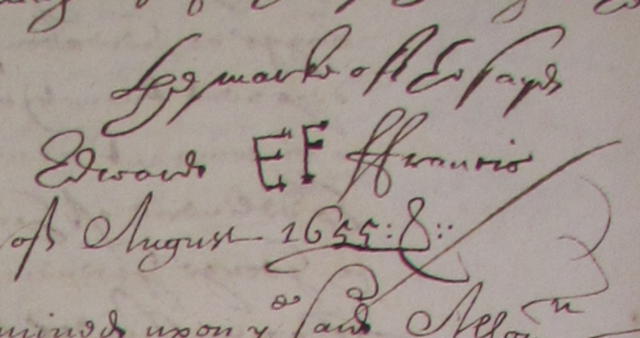 The marke of the sayd
Edward EF ffrancis
of August 1655:8::
mined upon ye said